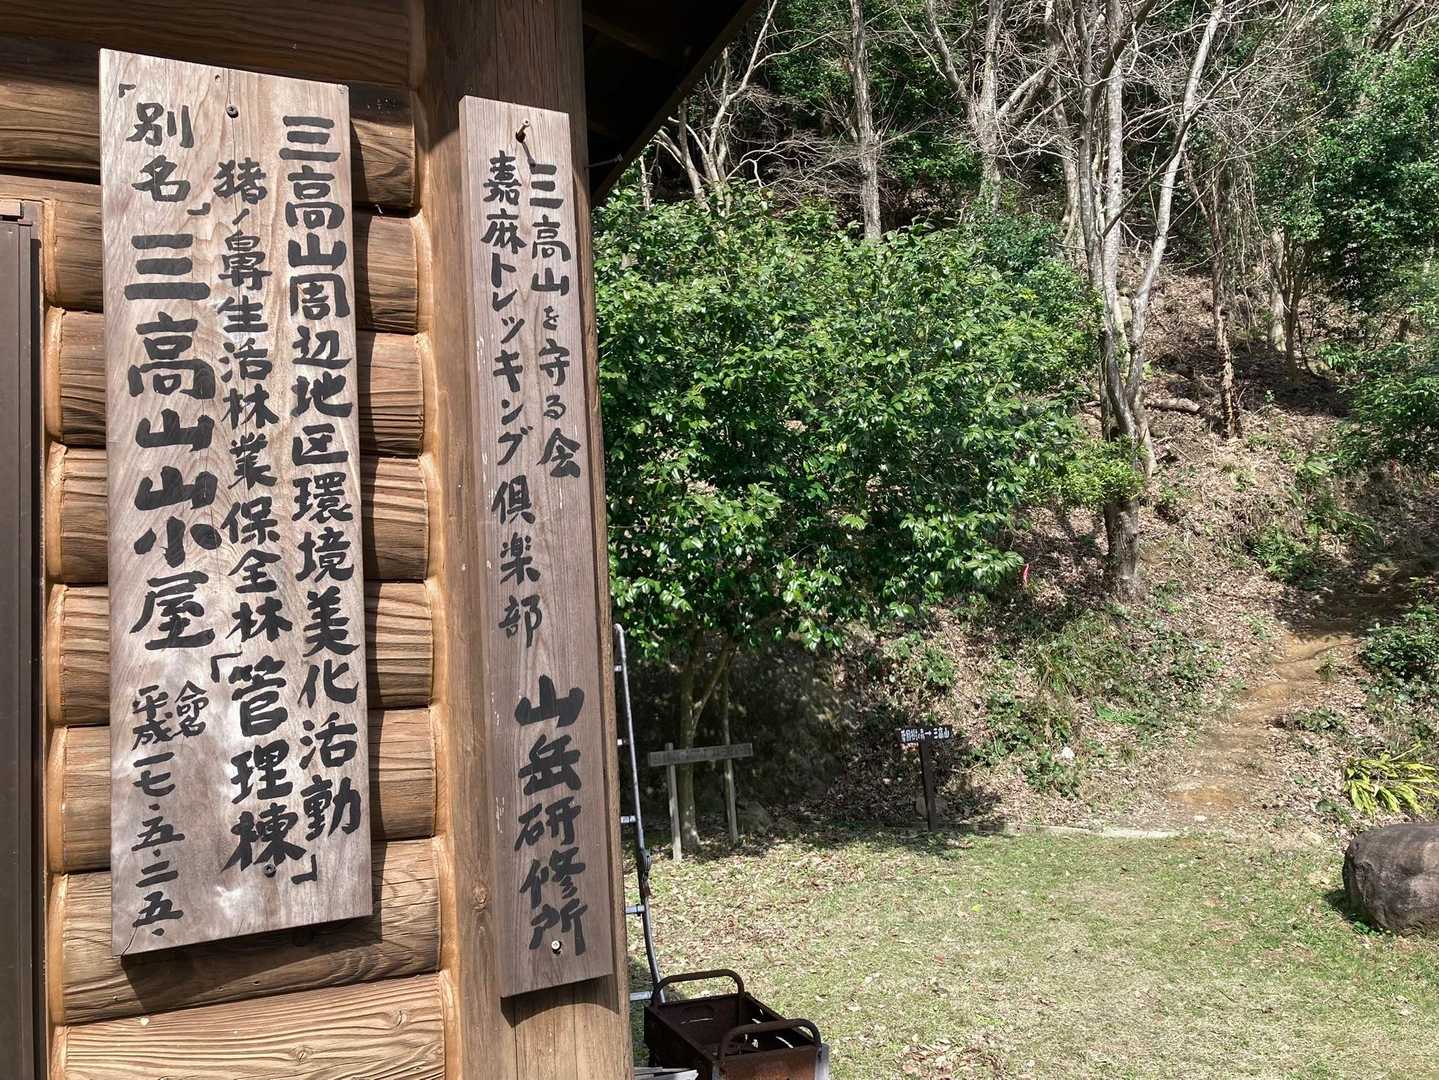 三高山周辺地区環境美化活動」
猪ノ鼻生活林業保全林「管理棟
「別名」三高山山小屋
命名
平成一七・五・二五・
三高山を守る会
嘉麻トレッキング倶楽部
山岳研修所